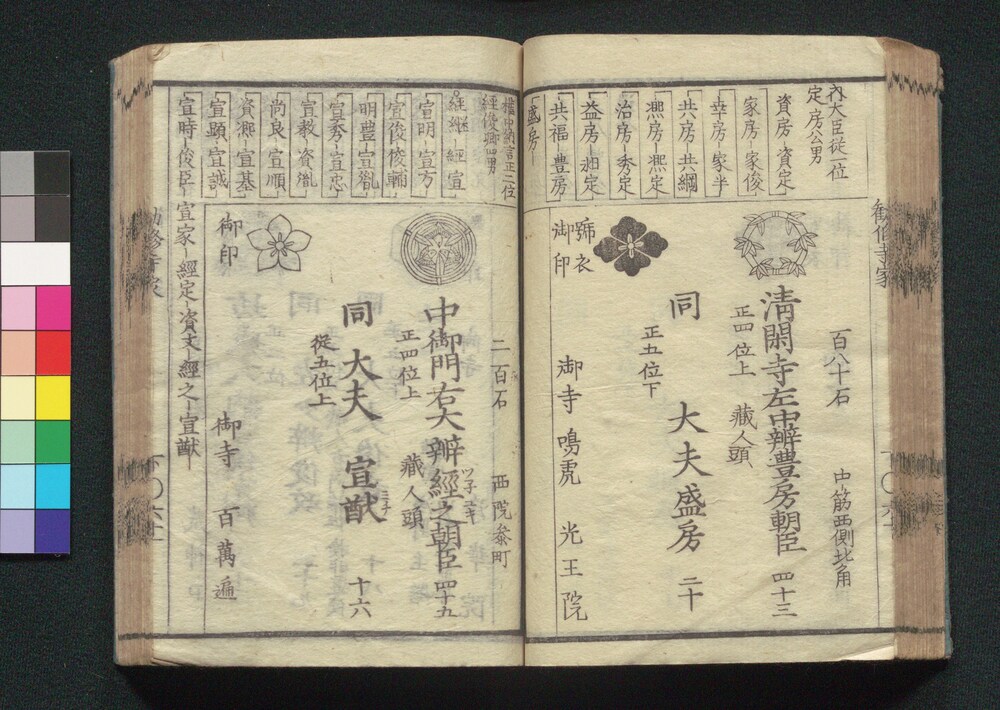 勧修寺家
内大臣従一位
定房公男
資房―資定
家房―家俊
幸房―家半
共房―共綱
凞房―凞定
治房―秀定
益房―昶定
共福―豊房
盛房―
百八十石
中筋西側北角
清閑寺左中辨豊房朝臣 四十三
正四位上 藏人頭
同 大夫盛房 二十
正五位下
御寺 鳴虎 光王院
御印
權中納言正二位
經俊卿四男
經継―經宣
宣明―宣方
宣俊―俊輔
明豊―宣胤
宣秀―宣忠
宣教―資胤
尚良―宣順
資凞―宣基
宣顕―宣誠
宣時―俊臣―宣家―經定―資文―經之―宣猷
二百石
西院参町
中御門右大辨經之朝臣 四十五
ツネユキ
正四位上 藏人頭
同 大夫 宣猷 十六
從五位上
御印
御寺 百萬遍
勧修寺家
下〇六十一